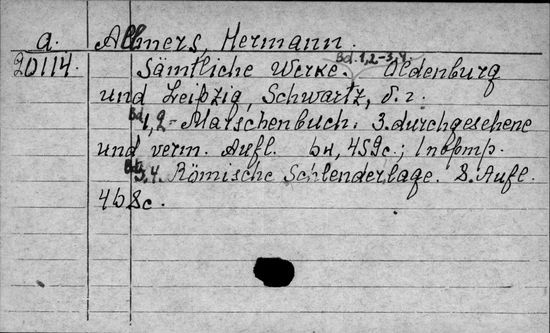 a. Allmers, Hermann.
Bd. 1,2-3,4.
20114. Sämtliche Werke. Oldenburg
und Leipzig, Schwartz, s. a.
Bd 1,2 - Marschenbuch. 3. durchgesehene
und verm. Aufl. 459c.; 1
Bd 3,4. Römische Schlendertage. 8. Aufl.
458c.